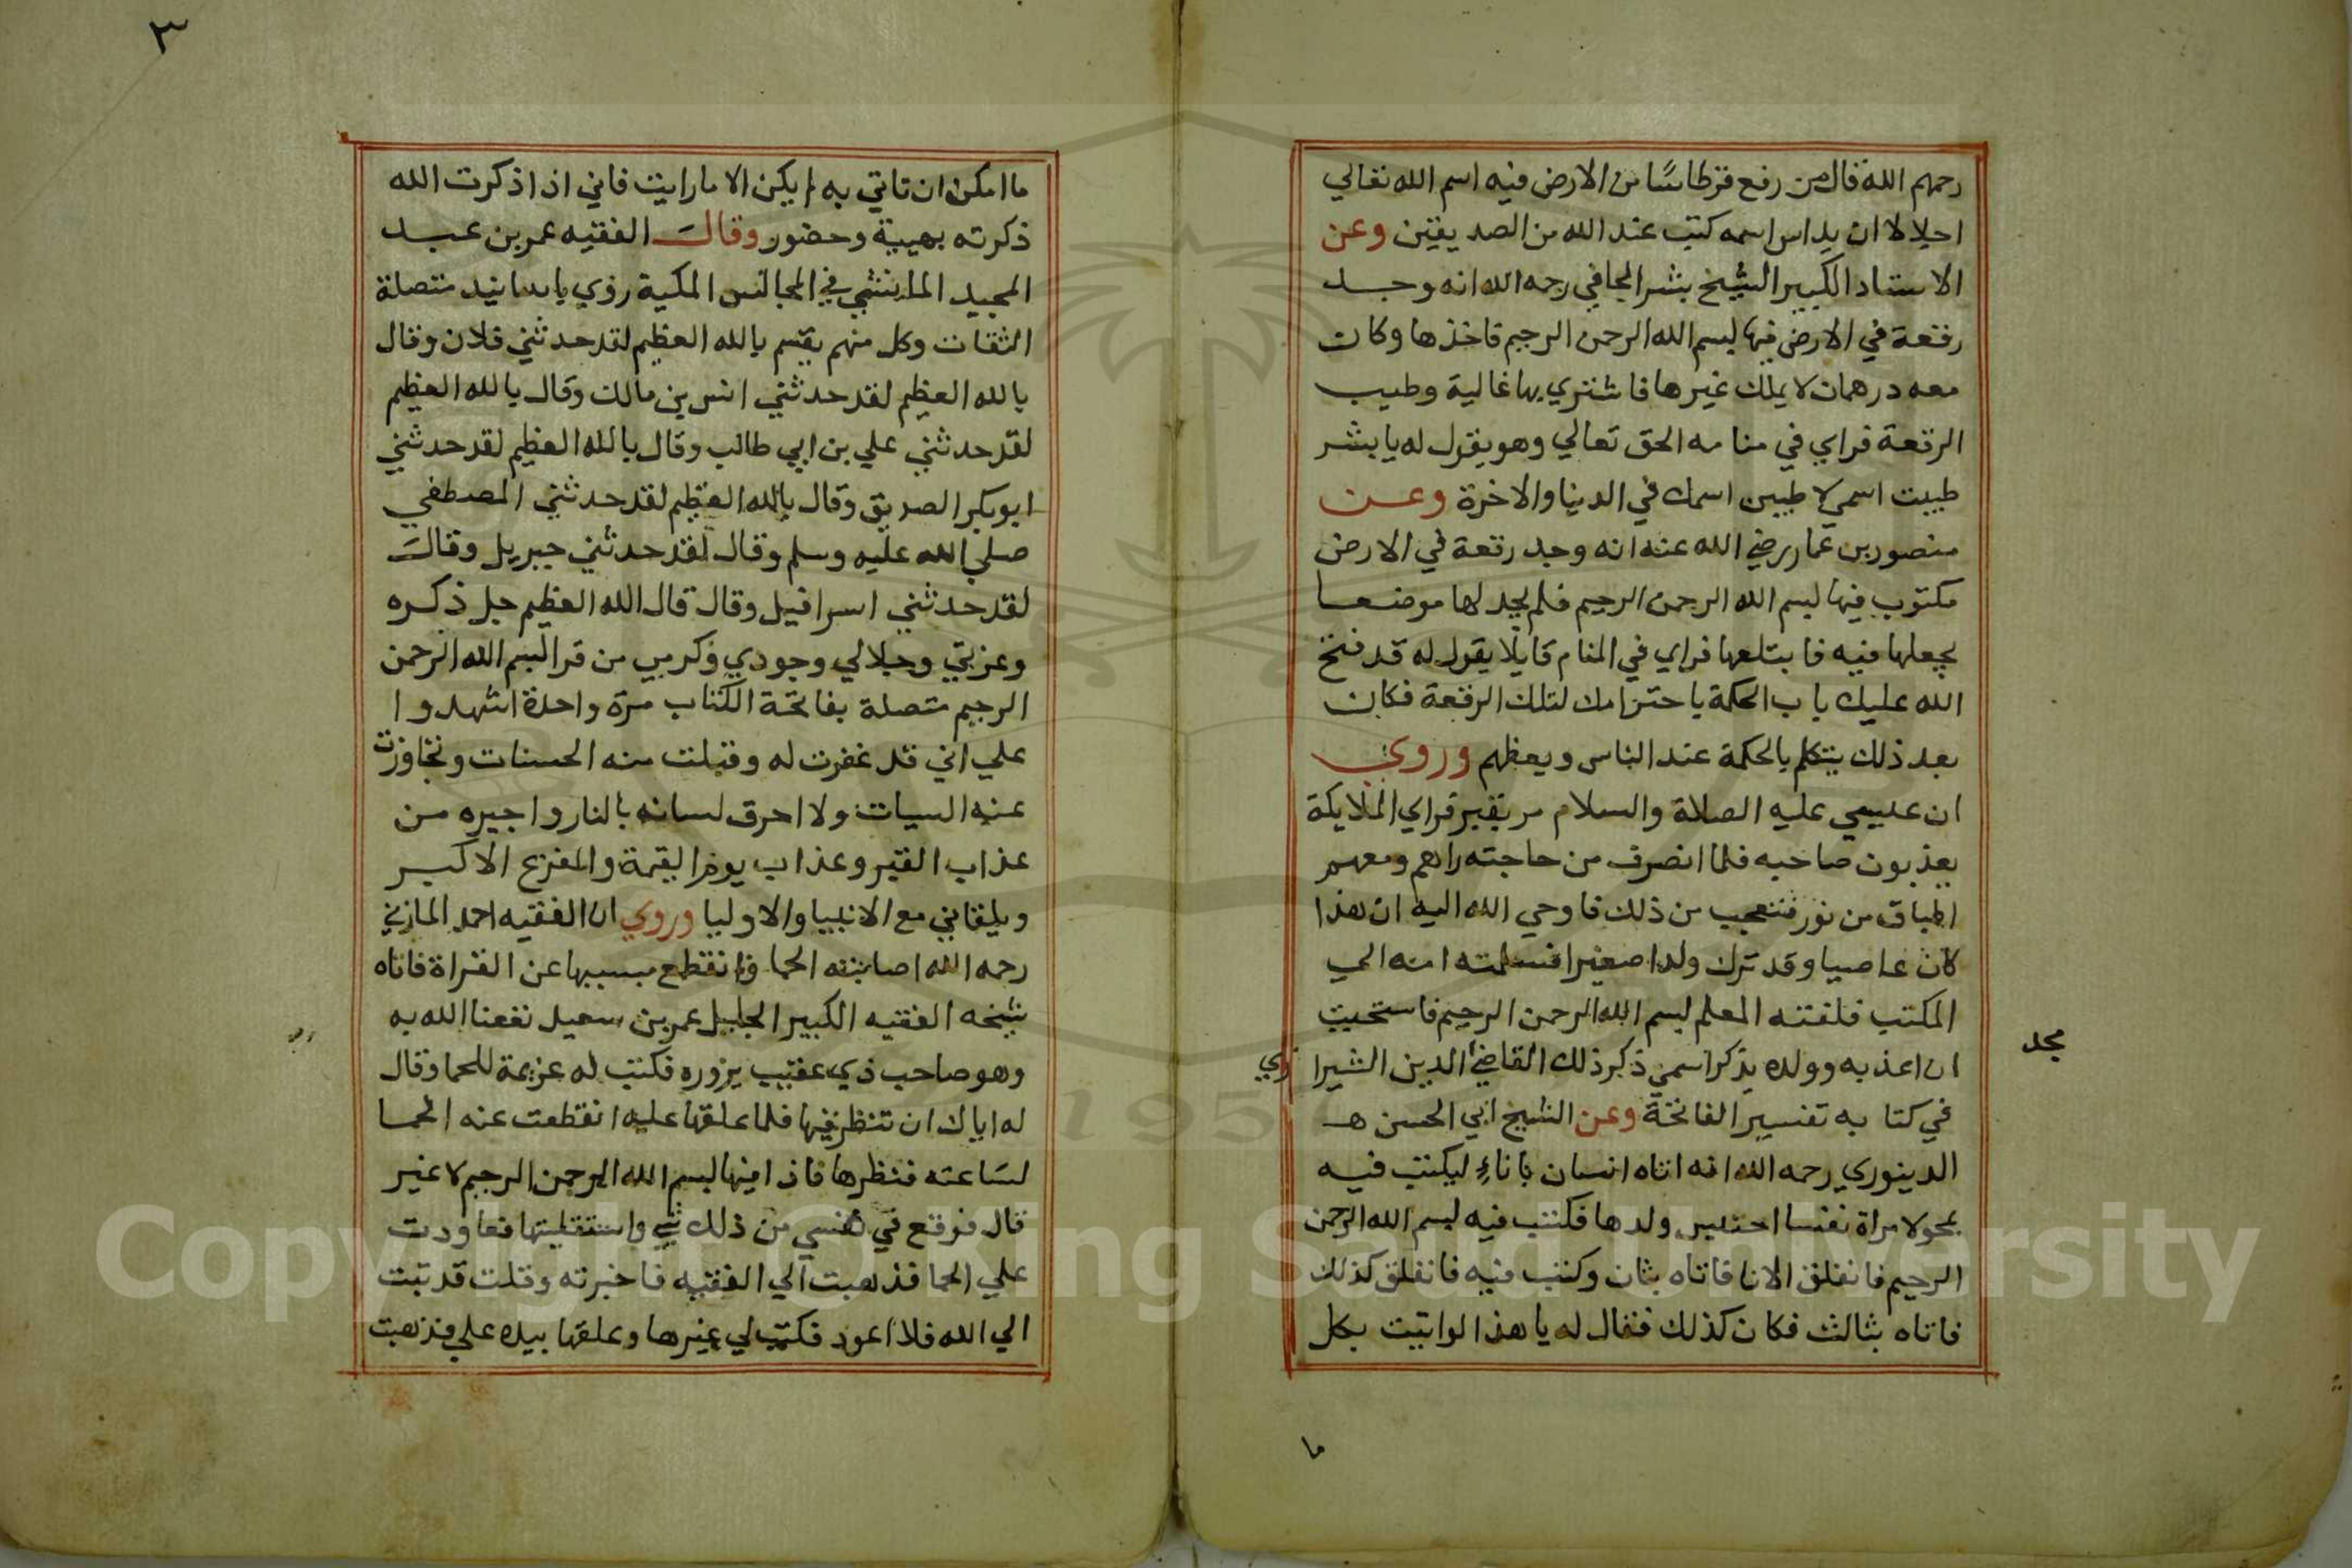 رحمهم الله قال من رفع قرطاسًا من الارض فيه اسم الله تعالي
اجلالا ان يداس اسمه كتب عند الله من الصديقين وعن
الاستاد الكبير الشيخ بشر الحافي رحمه الله انه وجد
رقعة في الارض فيها بسم الله الرحمن الرحيم فاخذها وكان
معه درهمان لا يملك غيرها فاشتري بها غالية وطيب
الرقعة فراي في منامه الحق تعالي وهو يقول له يا بشر
طيبت اسمي لاطيبن اسمك في الدنيا والاخرة وعن
منصور بن عمار رضي الله عنه انه وجد رقعة في الارض
مكتوب فيها بسم الله الرحمن الرحيم فلم يجد لها موضعا
يجعلها فيه فابتلعها فراي في المنام قايلا يقول له قد فتح
الله عليك باب الحكمة باحترامك لتلك الرقعة فكان
بعد ذلك يتكلم بالحكمة عند الناس ويعظهم وروي
ان عيسي عليه الصلاة والسلام مر بقبر فراي الملايكة
يعذبون صاحبه فلما انصرف من حاجته راهم ومعهم
اطباق من نور فتعجب من ذلك فاوحي الله اليه ان هذا
كان عاصيا وقد ترك ولدا صغيرا فسلمته امه الي
المكتب فلقنته المعلم بسم الله الرحمن الرحيم فاستحيت
ان اعذبه وولده يذكر اسمي ذكر ذلك القاضي الدين الشيرا زي
مجد
في كتابه تفسير الفاتحة وعن الشيخ ابي الحسن هـ
الدينوري رحمه الله انه اتاه انسان باناءٍ ليكتب فيه
بمحو لامراة نفسا احتبس ولدها فكتب فيه بسم الله الرحمن
الرحيم فانفلق الانا فاتاه بثان وكتب فيه فانفلق كذلك
فاتاه بثالث فكان كذلك فقال له يا هذا لو اتيت بكل
ما
٣
ما امكن ان تاتي به لم يكن الا ما رايت فاني اذا ذكرت الله
ذكرته بهيبة وحضور وقال الفقيه عمر بن عبد
المجيد الميانشي في المجالس المكية روي باسانيد متصلة
الثقات وكل منهم يقسم بالله العظيم لقد حدثني فلان وقال
بالله العظيم لقد حدثني انس بن مالك وقال بالله العظيم
لقد حدثني علي بن ابي طالب وقال بالله العظيم لقد حدثني
ابو بكر الصديق وقال بالله العظيم لقد حدثني المصطفي
صلي الله عليه وسلم وقال لقد حدثني جبريل وقال
لقد حدثني اسرافيل وقال قال الله العظيم جل ذكره
وعزتي وجلالي وجودي وكرمي من قرا بسم الله الرحمن
الرحيم متصلة بفاتحة الكتاب مرة واحدة اشهدوا
علي اني قد غفرت له وقبلت منه الحسنات وتجاوزت
عنه السيات ولا احرق لسانه بالنار واجيره من
عذاب القبر وعذاب يوم القيمة والفزع الاكبر
ويلقاني مع الانبيا والاوليا وروي ان الفقيه احمد المازني
رحمه الله اصابته الحما وانقطع بسببها عن القراة فاتاه
شيخه الفقيه الكبير الجليل عمر بن سعيد نفعنا الله به
وهو صاحب ذي عقيب يزوره فكتب له عزيمة للحما وقال
له اياك ان تنظر فيها فلما علقها عليه انقطعت عنه الحما
لسَاعته فنظرها فاذا فيها بسم الله الرحمن الرحيم لا غير
قال فوقع في نفسي من ذلك شي واستقليتها فعاودت
علي الحما فذهبت الي الفقيه فاخبرته وقلت قد تبت
الي الله فلا اعود فكتب لي غيرها وعلقها بيده علي فذهبت
Copyright © King Saud University